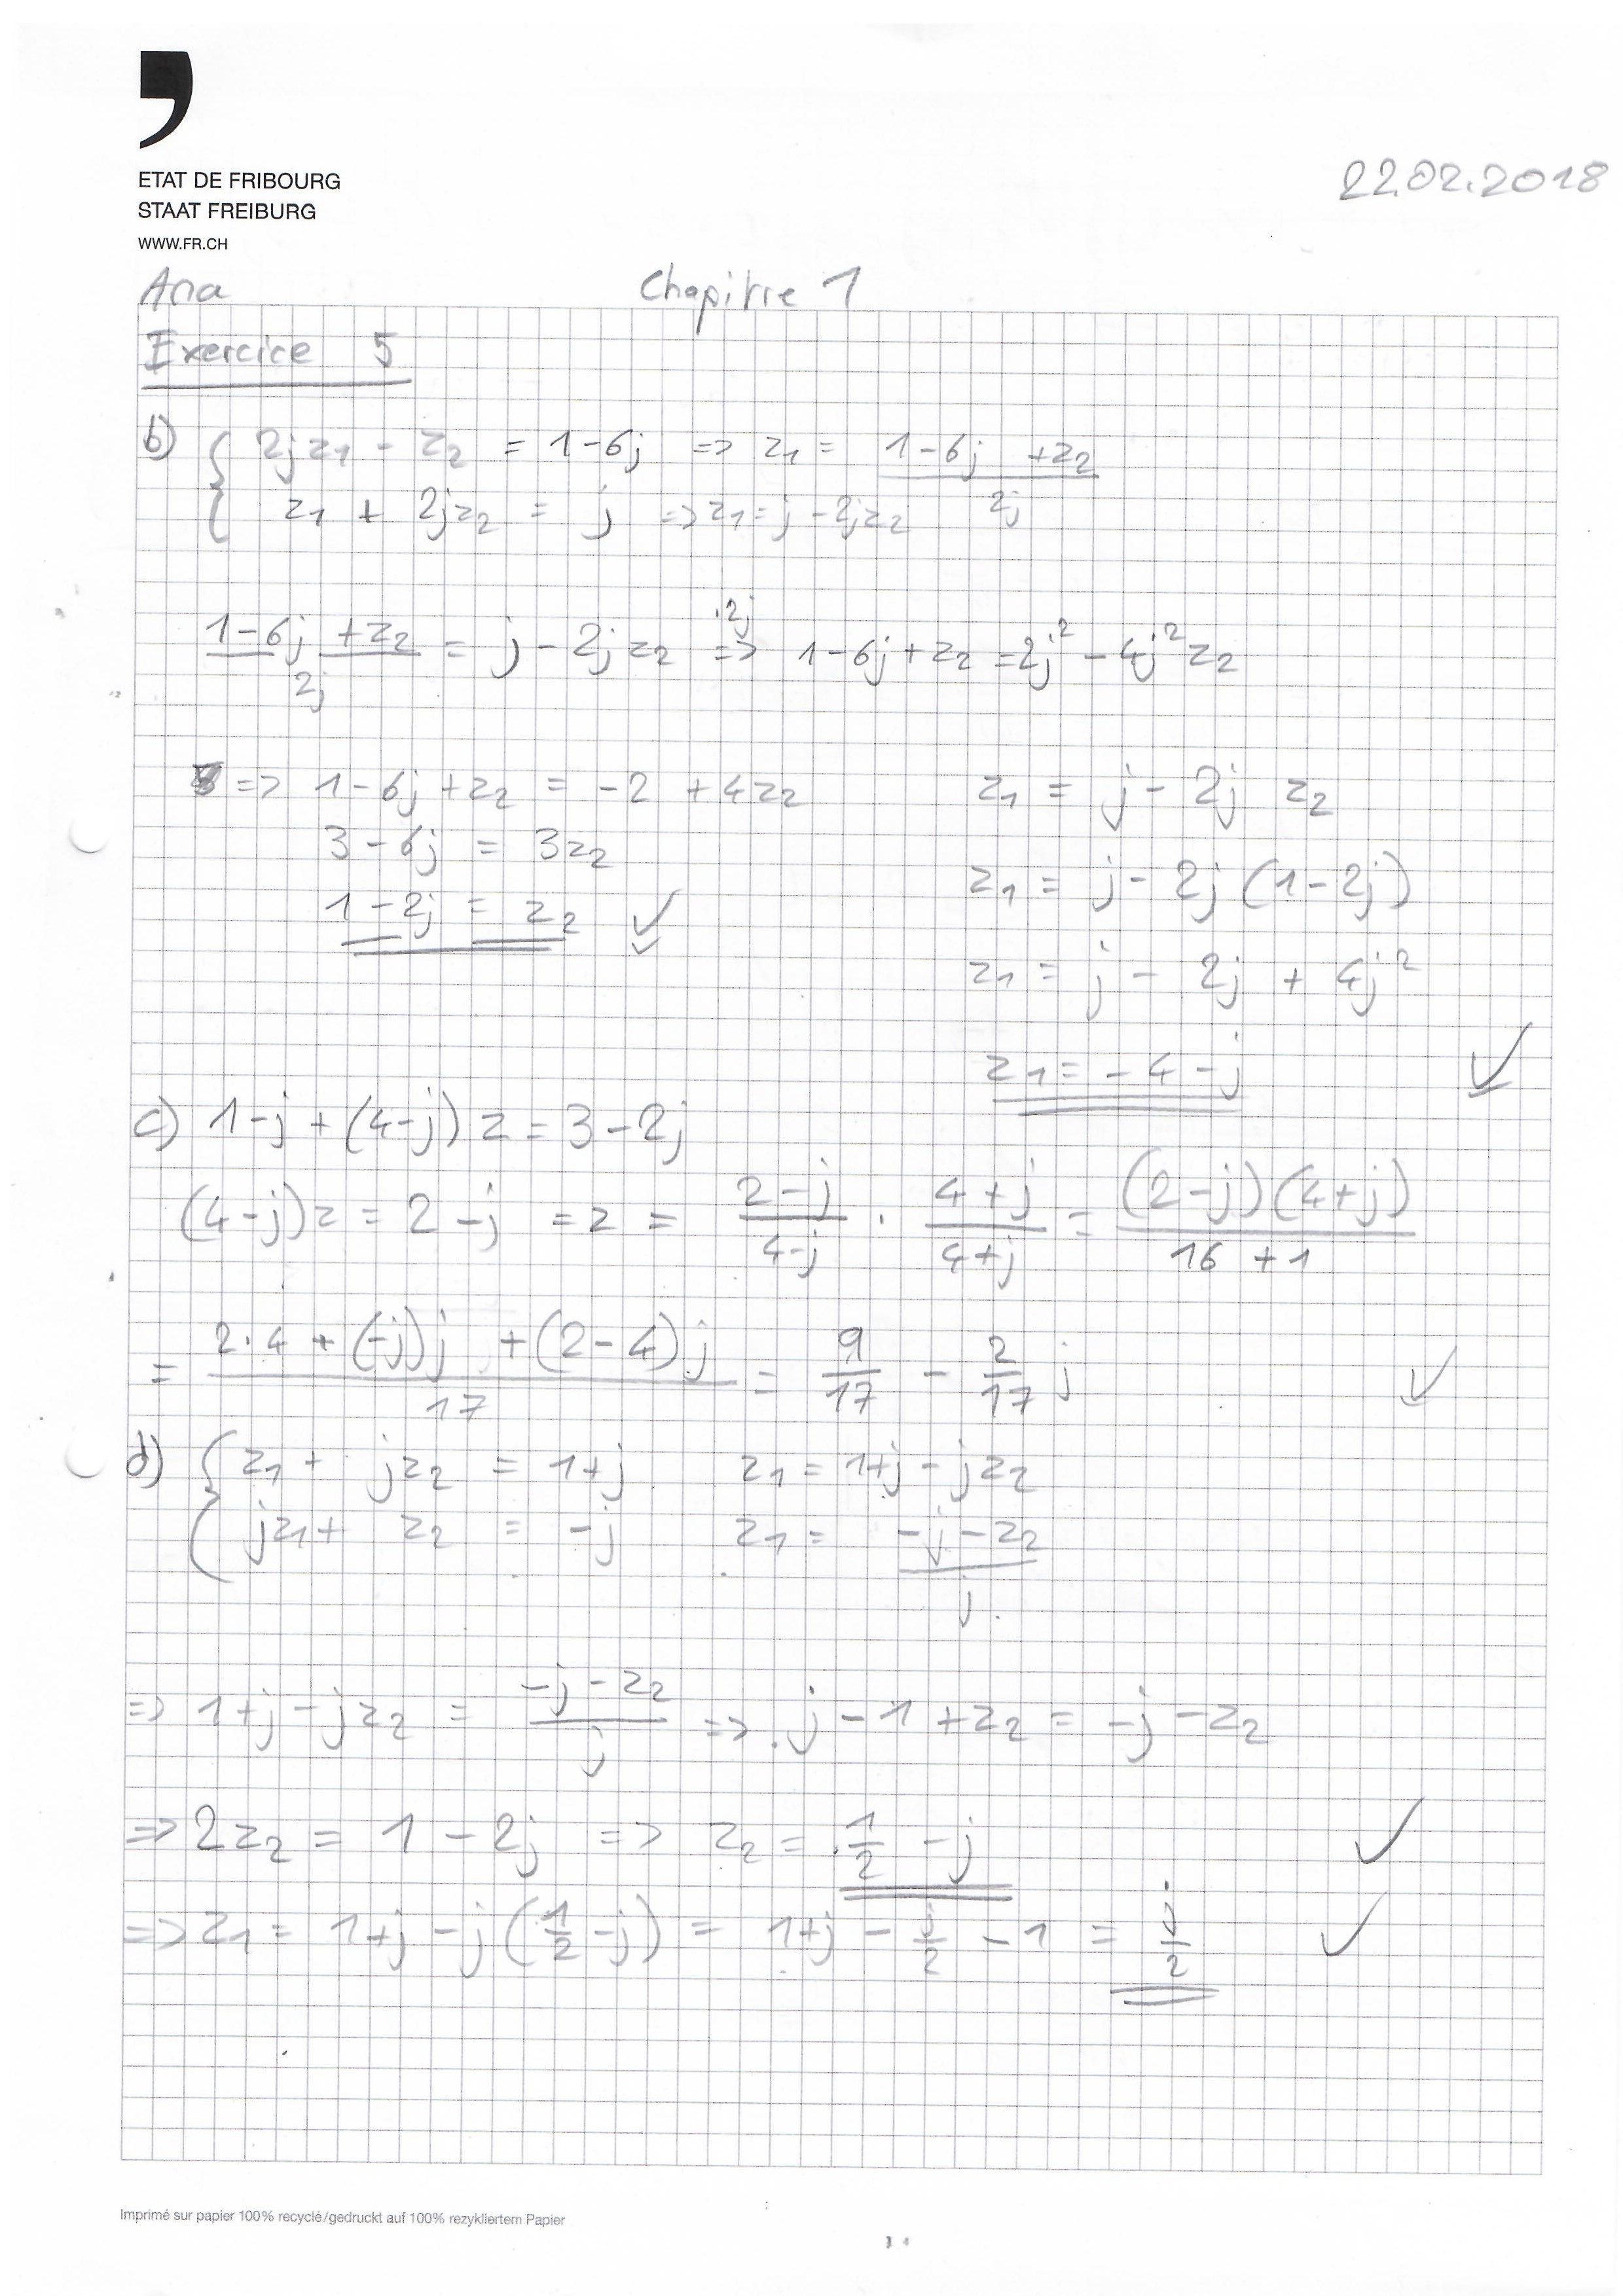 ETAT DE FRIBOURG
STAAT FREIBURG
WWW.FR.CH
22.02.2018
Ana Chapitre 1
Exercice 5
b) { 2jz₁ - z₂ = 1-6j => z₁ = (1-6j +z₂)/2j
z₁ + 2jz₂ = j => z₁ = j - 2jz₂
(1-6j +z₂)/2j = j - 2jz₂ ·2j => 1-6j+z₂ = 2j² - 4j²z₂
=> 1-6j+z₂ = -2 +4z₂
3-6j = 3z₂
1-2j = z₂ ✓
z₁ = j - 2j z₂
z₁ = j - 2j(1-2j)
z₁ = j - 2j + 4j²
z₁ = -4-j ✓
c) 1-j + (4-j) z = 3-2j
(4-j)z = 2-j = z = (2-j)/(4-j) · (4+j)/(4+j) = (2-j)(4+j)/(16+1)
= (2·4 + (-j)j +(2-4)j)/17 = 9/17 - 2/17 j ✓
d) { z₁ + jz₂ = 1+j z₁ = 1+j-jz₂
jz₁ + z₂ = -j z₁ = (-j-z₂)/j
=> 1+j-jz₂ = (-j-z₂)/j => j-1+z₂ = -j-z₂
=> 2z₂ = 1-2j => z₂ = 1/2 - j ✓
=> z₁ = 1+j-j(1/2-j) = 1+j - j/2 - 1 = j/2 ✓
Imprimé sur papier 100% recyclé/gedruckt auf 100% rezykliertem Papier